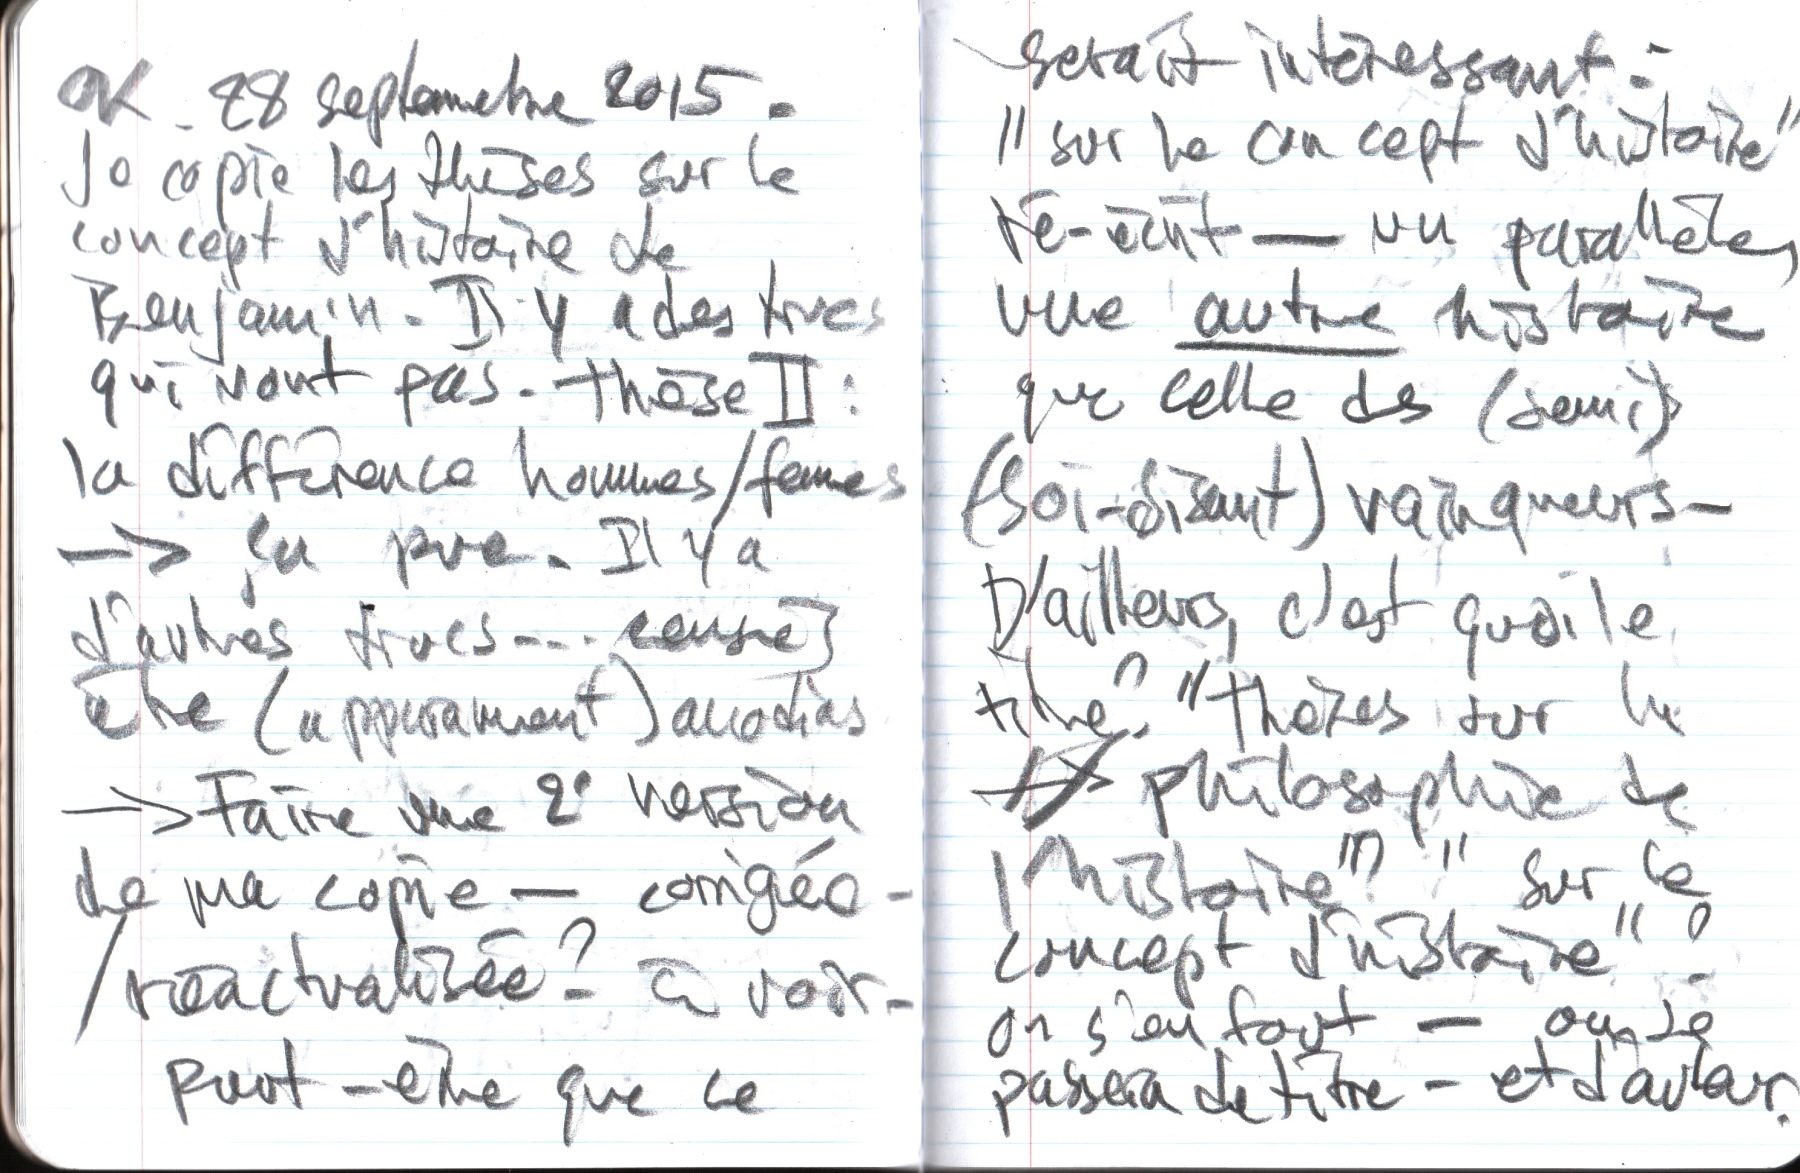 OK. 28 septembre 2015.
Je copie les thèses sur le
concept d'histoire de
Benjamin. Il y a des trucs
qui vont pas. Thèse II :
la différence hommes/femmes
—> ça pue. Il y a
d'autres trucs... censés
être (apparament) anodins
—> Faire une 2e version
de ma copie — corrigée -
/réactualisée? à voir -
peut-être que ce
serait intéressant :
"sur le concept d'histoire"
ré-écrit — un parallèle,
une autre histoire
que celle des (semi)
(soi-disant) vainqueurs -
D'ailleurs, c'est quoi le
titre? "Thèses sur la
philosophie de
l'histoire"? "sur le
concept d'histoire"?
on s'en fout — on se
passera de titre - et d'auteur.